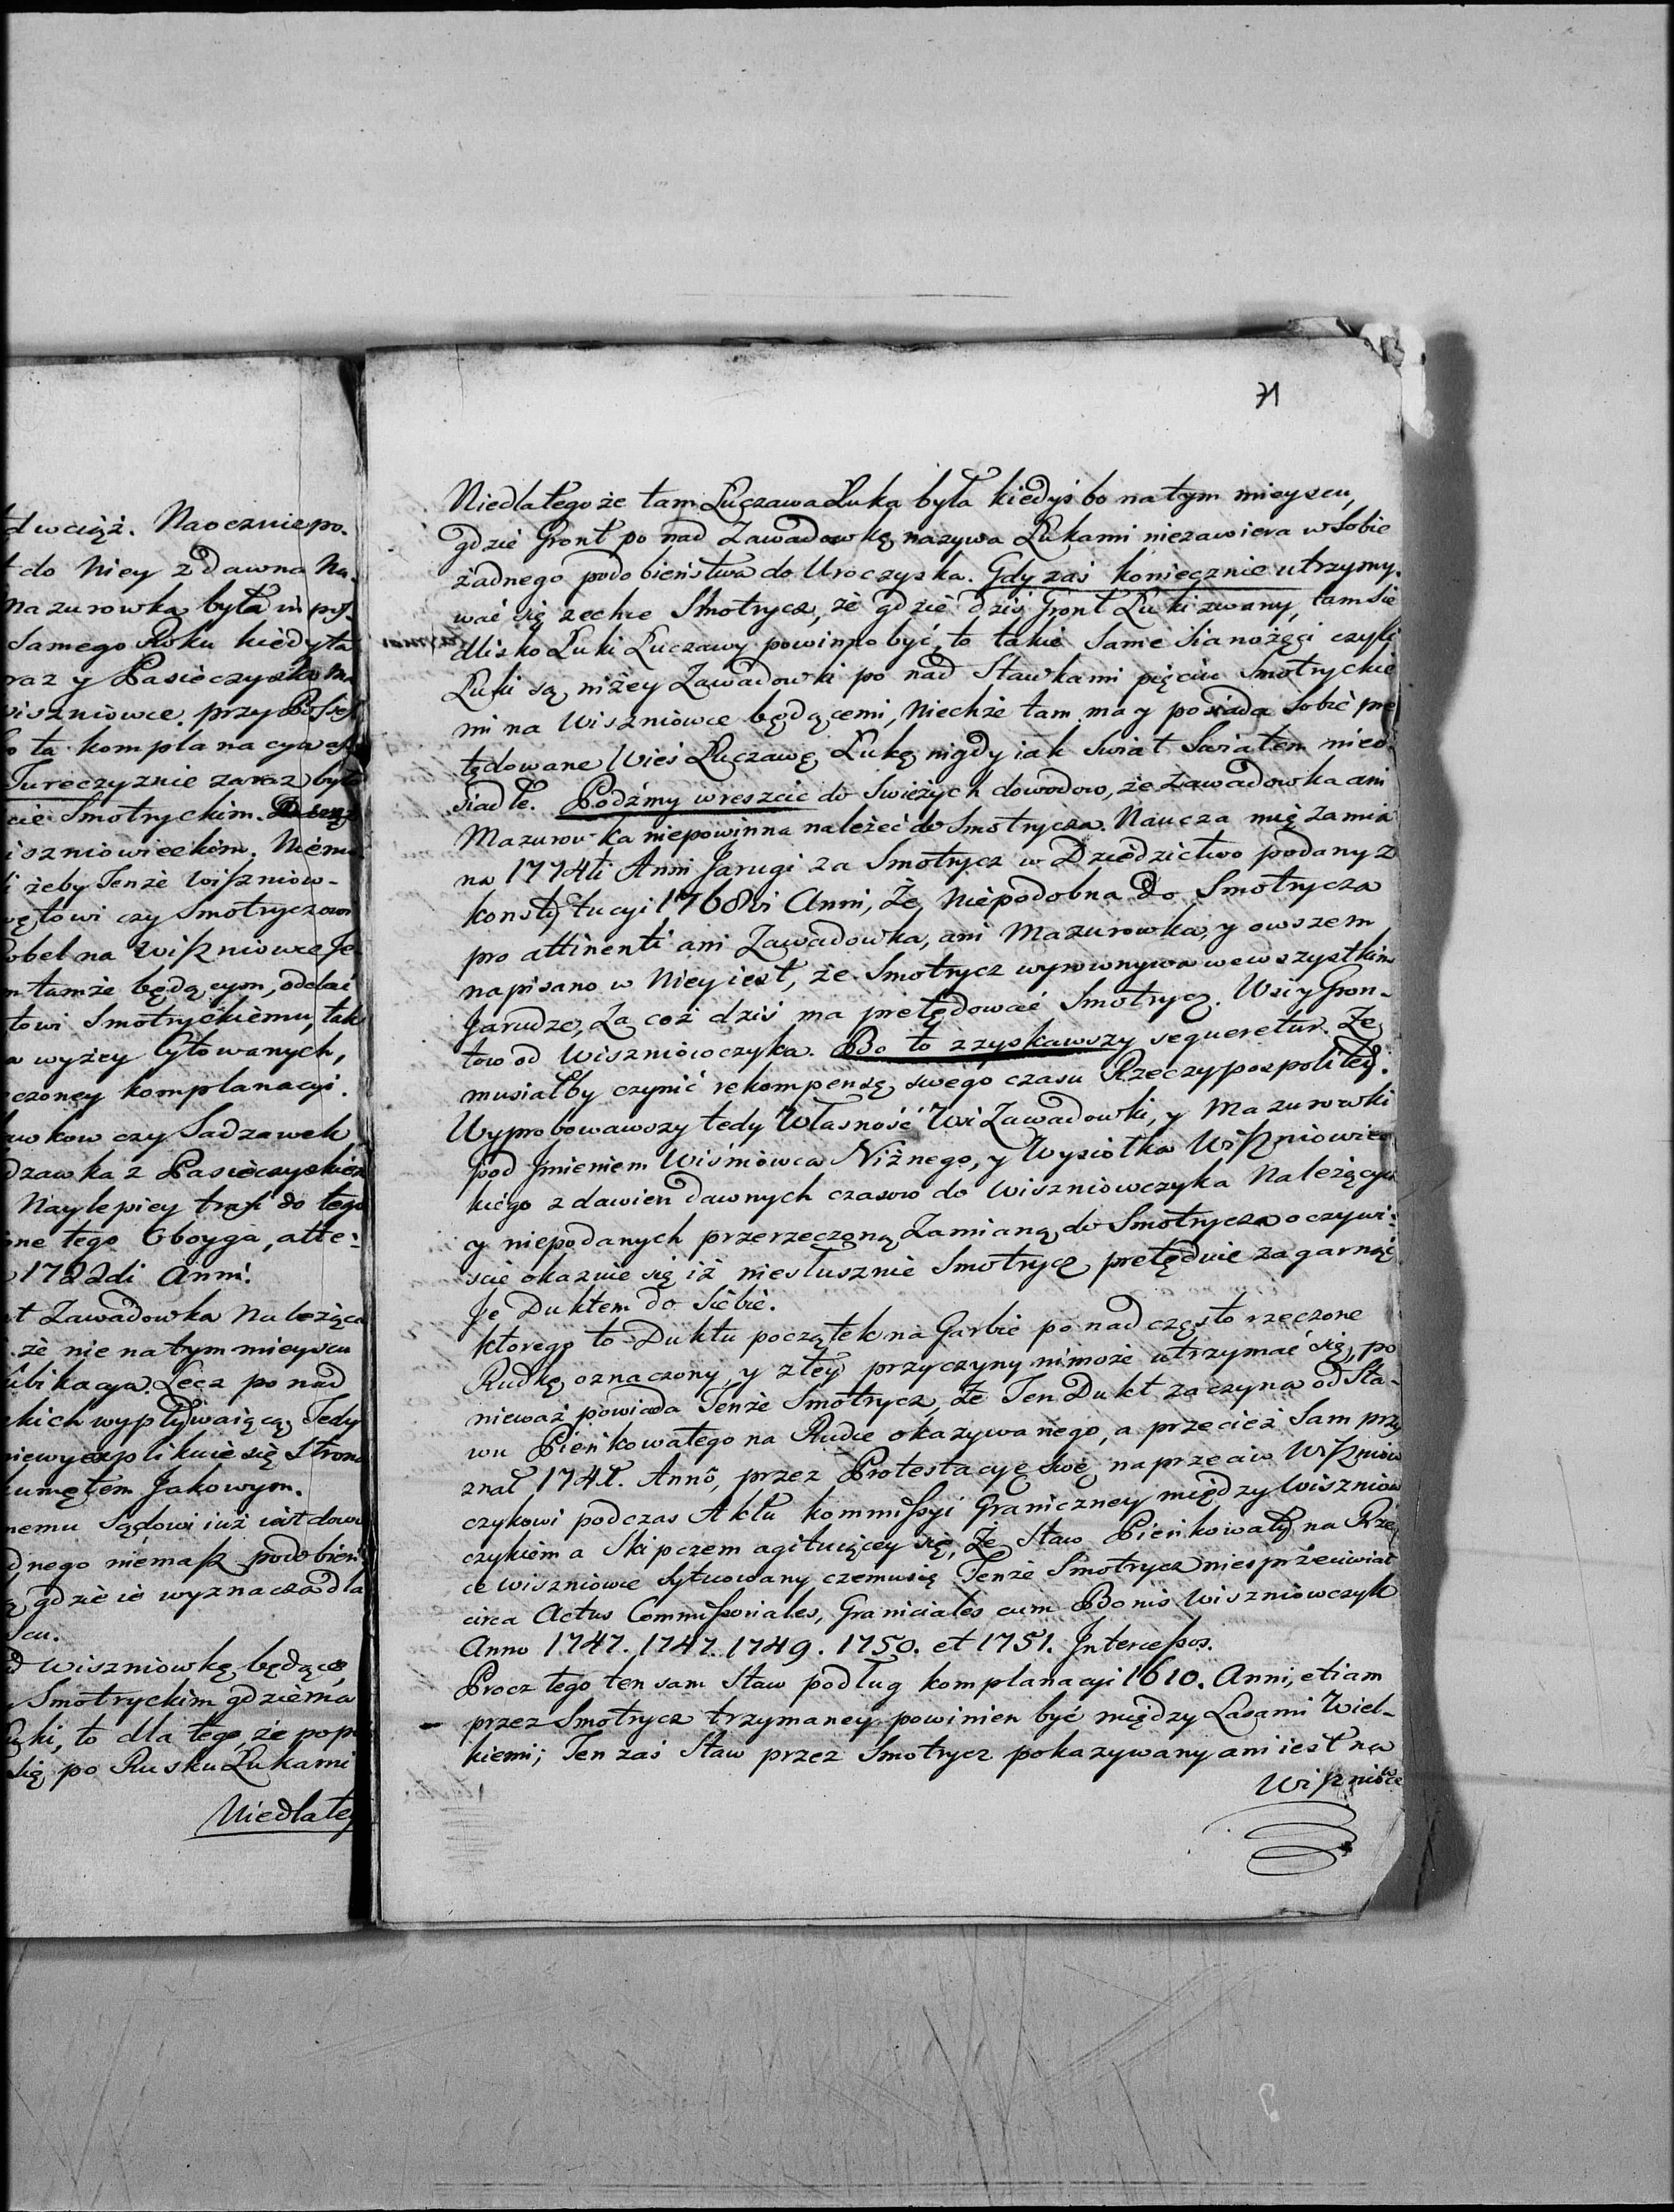 d wciąż. Naocznie po-
t do Niey z dawna Na-
Mazurowka była in pos-
samego Roku kiedy ta
raz y Pasieczysko
wiszniowce przy
ta komplanacya
Tureczyznie zaraz było
cie Smotryckim.
iszniowieckim.
i żeby Tenże Wiszniow-
wętowi czy Smotryczowi
obel na Wiszniowce Je-
m tamże będącym, oddać
towi Smotryckiemu, tak
a wyżey Cytowanych,
czoney komplanacyi.
wkow czy Sadzawek
dzawka z Pasieczyskiem
Naylepiey trafi do tego
one tego Oboyga, atte-
1722di Anni.
t Zawadowka Należąca
że nie na tym mieyscu
ubikacya. Lecz po nad
skich wypływaiącą Tedy
niewyexplikuie się Strona
kumętem Jakowym.
nemu Sądowi iuż iest dowo
dnego niemasz podobień
gdzie ie wyznacza dla
scu.
d Wiszniowkę będące,
Smotryckim gdzie ma
Łuki, to dla tego, że po
się po Rusku Łukami
Niedlateg
71
Niedlatego że tam Łuczawa Łuka była kiedyś bo na tym mieyscu,
gdzie Gront po nad Zawadowkę nazywa Łukami niezawiera w Sobie
żadnego podobieństwa do Uroczyska. Gdy zaś koniecznie utrzymy-
wać się zechce Smotrycz, że gdzie dziś Gront Łuki zwany, tam Sie
dlisko Łuki Łuczawy powinno być, to takie same Sianożęci czyli
Łuki są niżey Zawadowki po nad Stawkami pięciu Smotryckie
mi na Wiszniowce będącemi, Niechże tam ma y posiada Sobie pre
tędowane Wieś Łuczawę Łukę nigdy iak Swiat Swiatem nieo-
siadłe. Podźmy wreszcie do Swieżych dowodow, że Zawadowka ani
Mazurowka niepowinna należeć do Smotrycza. Naucza mię Zamia
na 1774ti Anni Jarugi za Smotrycz w Dziedzictwo podany z
konstytucyi 1768vi Anni, Że Niepodobna do Smotrycza
pro attinenti ani Zawadowka, ani Mazurowka, y owszem
napisano w Niey iest, że Smotrycz wyrownywa we wszystkim
Jarudze, Za coż dziś ma pretędować Smotrycz. Wsi y Gron-
tow od Wiszniowczyka. Bo to zzyskawszy sequeretur. Że
musiałby czynić rekompensę swego czasu Rzeczypospolitey.
Wyprobowawszy tedy Własność Wsi Zawadowki, y Mazurowki
pod Jmieniem Wiśniowca Niżnego, y Wysiołka Wiszniowiec
kiego z dawien dawnych czasow do Wiszniowczyka Należących
y niepodanych przerzeczoną Zamianą do Smotrycza oczywi-
scie okazuie się iż niesłusznie Smotrycz pretęduie zagarnąć
Je Duktem do Siebie.
ktorego to Duktu początek na Garbie po nad często rzeczone
Rudkę oznaczony, y z tey przyczyny nimoże utrzymać się, po
nieważ powiada Tenże Smotrycz, że Ten Dukt zaczyna od Sta-
wu Pieńkowatego na Rudce okazywanego, a przecież Sam przy
znał 1741. Anno, przez Protestacyę swę naprzeciw Wiszniow
czykowi podczas Aktu kommissyi Graniczney między Wiszniow
czykiem a Skipczem agituiącey się, Że Staw Pieńkowaty na Rze
ce Wiszniowce sytuowany czemusię Tenże Smotrycz niesprzeciwiał
circa Actus Commissoriales, Graniciales cum Bonis Wiszniowczyk
Anno 1747. 1747. 1749. 1750. et 1751. Intercessos.
Procz tego ten sam Staw podług komplanacyi 1610. Anni, etiam
przez Smotrycz trzymaney powinien być między Lasami Wiel-
kiemi; Ten zaś Staw przez Smotrycz pokazywany ani iest na
Wiszniowce